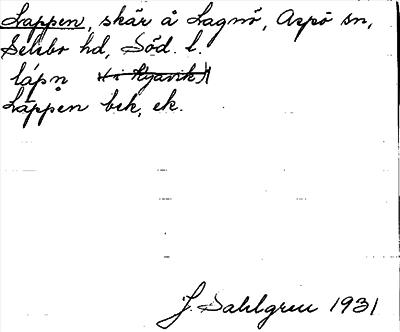 Lappen, skär å Lagnö, Aspö sn,
Selebo hd, Söd. l.
lápn̥
Lappen bek, ek.
J. Dahlgren 1931